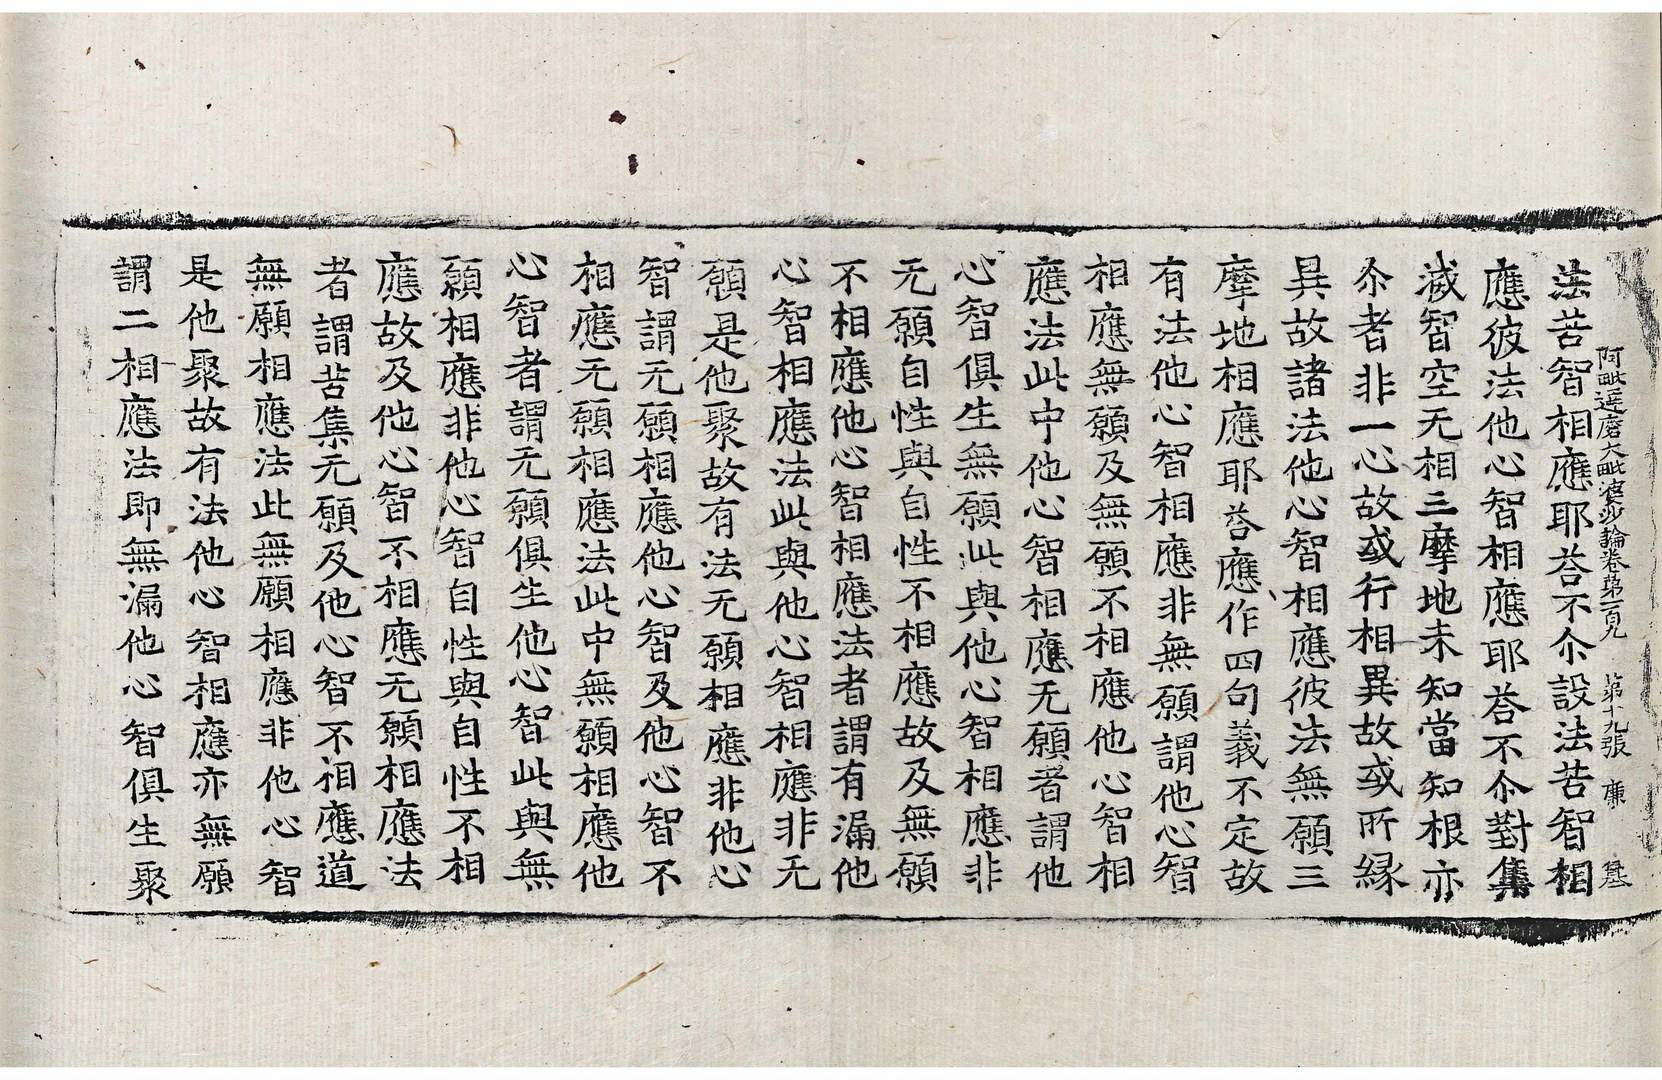 阿毗達磨大毗婆沙論卷第一百九　第十九張　廉
法苦智相應耶荅不尒設法苦智相
應彼法他心智相應耶荅不尒對集
滅智空无相三摩地未知當知根亦
尒者非一心故或行相異故或所緣
異故諸法他心智相應彼法無願三
摩地相應耶荅應作四句義不定故
有法他心智相應非無願謂他心智
相應無願及無願不相應他心智相
應法此中他心智相應无願者謂他
心智俱生無願此與他心智相應非
无願自性與自性不相應故及無願
不相應他心智相應法者謂有漏他
心智相應法此與他心智相應非无
願是他聚故有法无願相應非他心
智謂无願相應他心智及他心智不
相應无願相應法此中無願相應他
心智者謂无願俱生他心智此與無
願相應非他心智自性與自性不相
應故及他心智不相應无願相應法
者謂苦集无願及他心智不相應道
無願相應法此無願相應非他心智
是他聚故有法他心智相應亦無願
謂二相應法即無漏他心智俱生聚